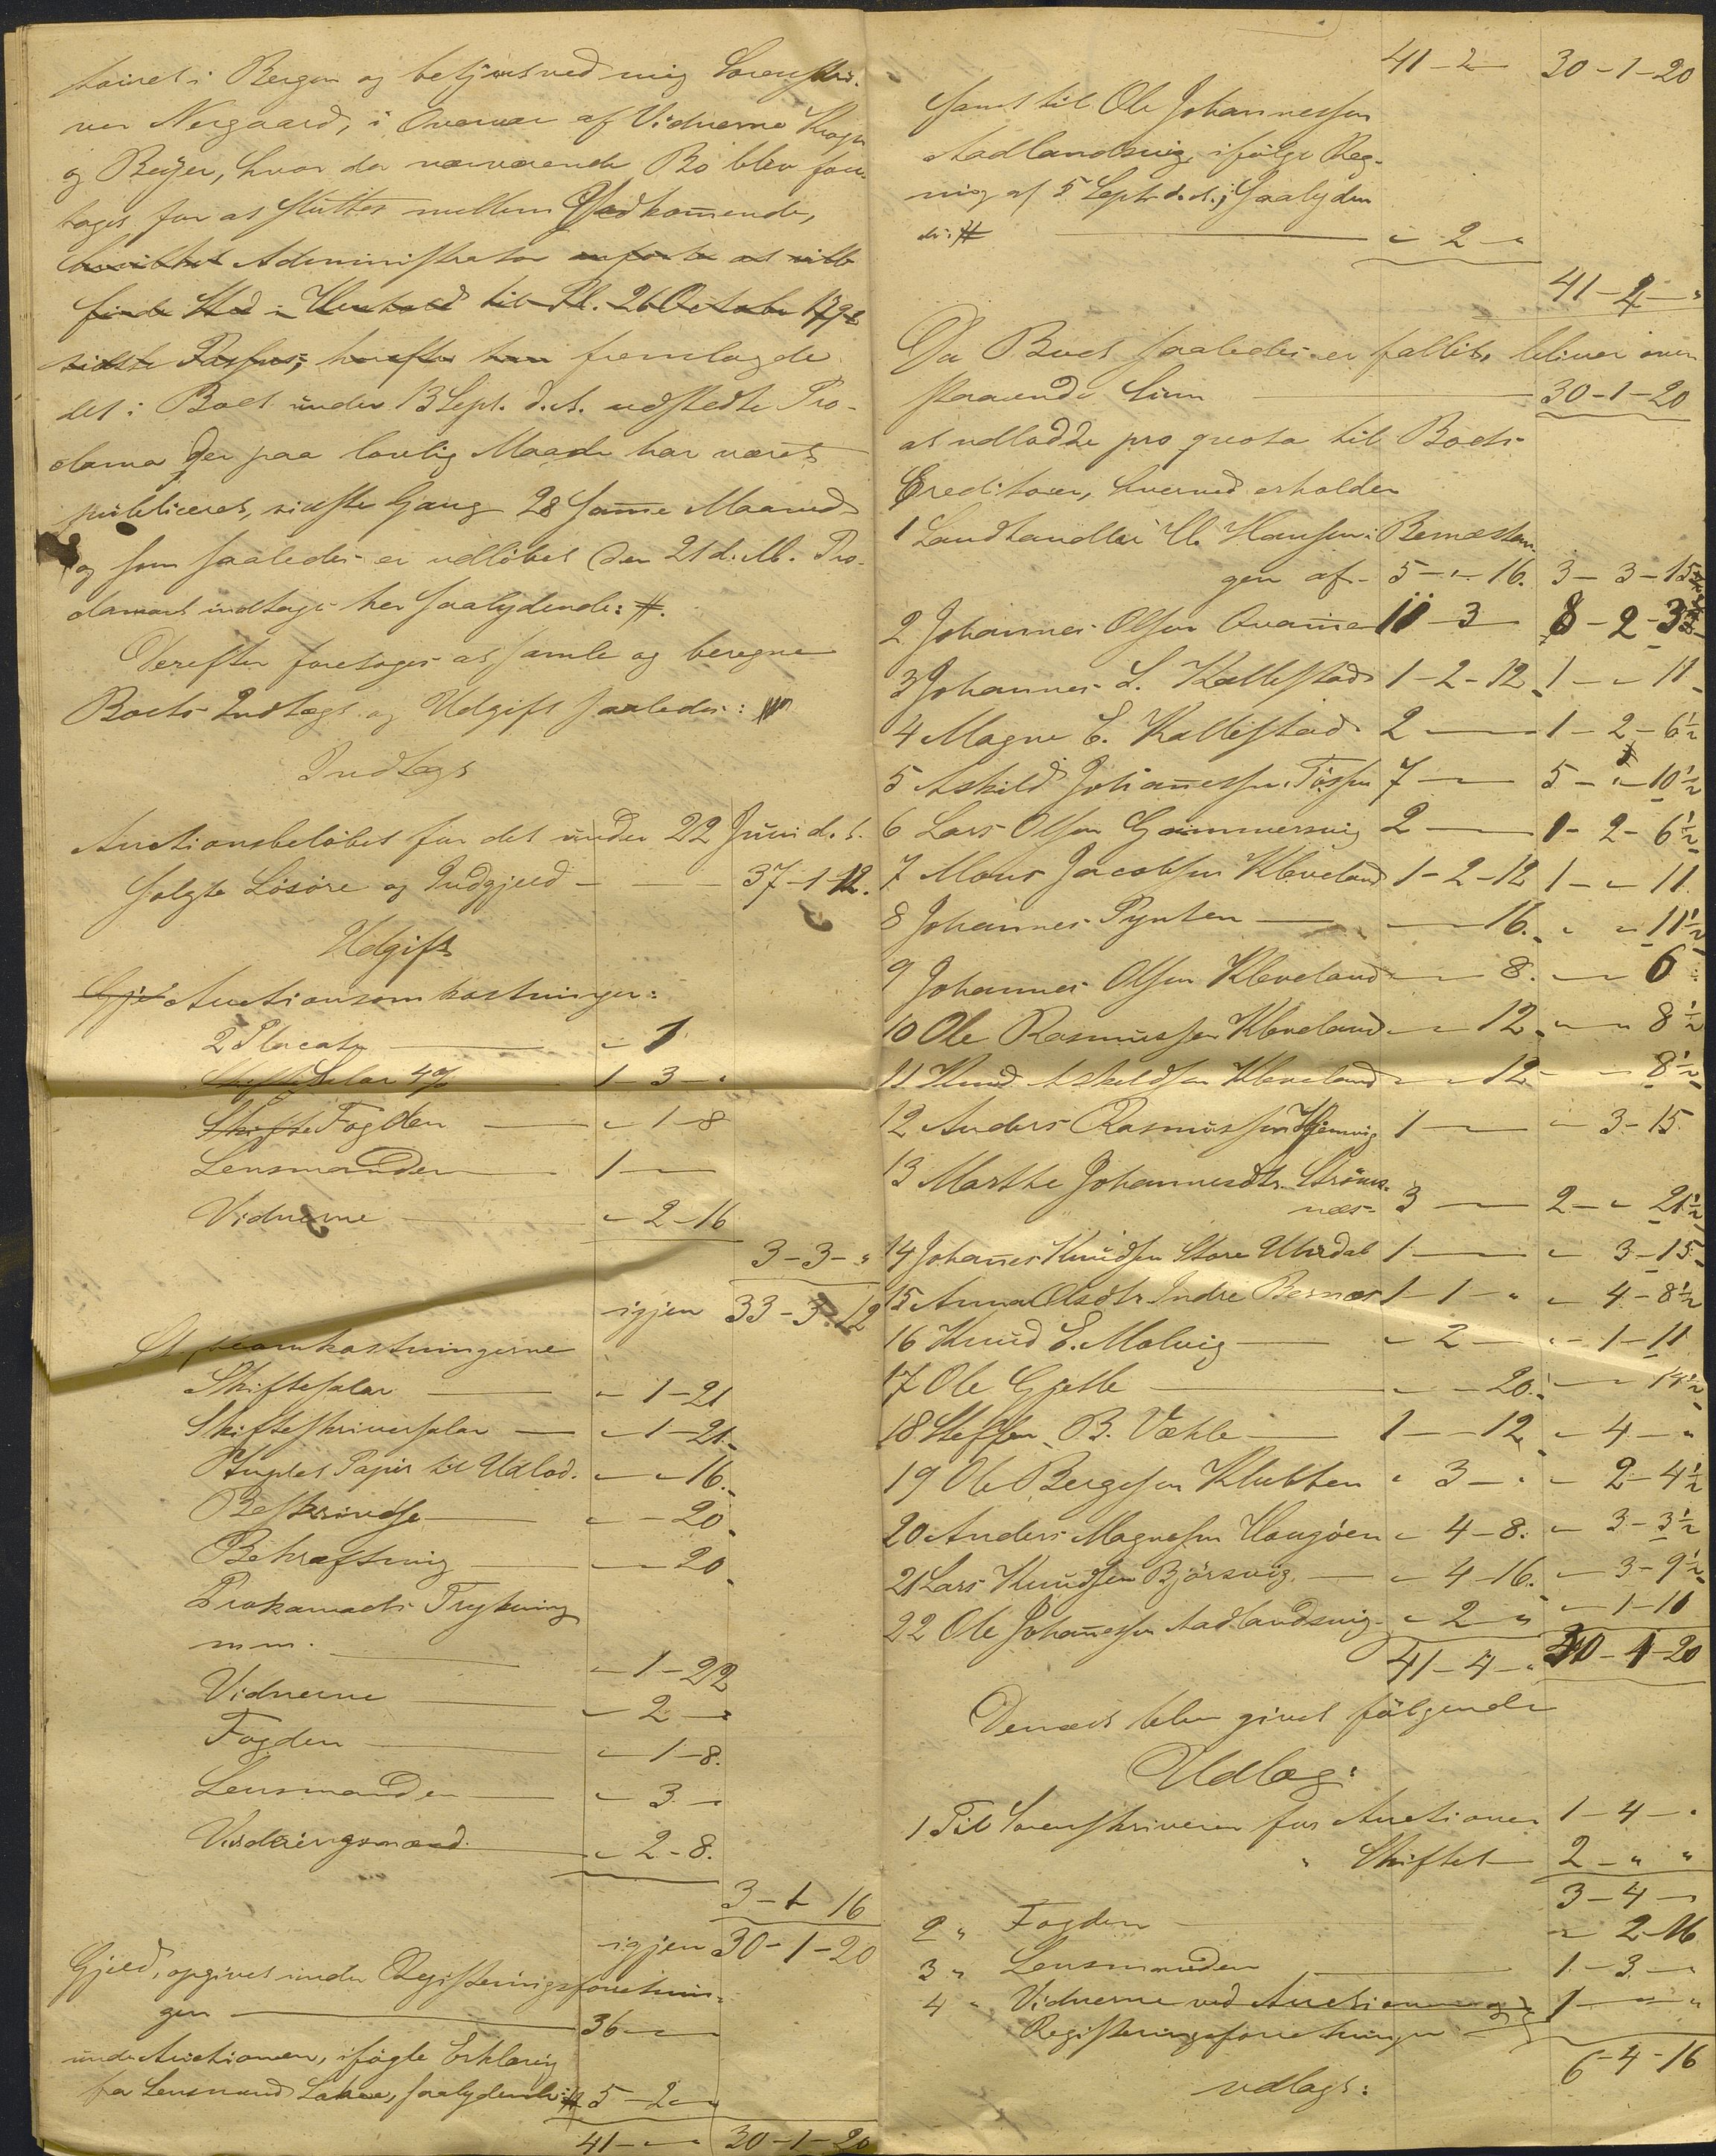 toiret i Bergen og betjent ved mig Sorenskri-
ver Nergaard, i Overvær af Vidnerne Krogh
og Beyer, hvor da nærværende Bo blev fore-
taget for at sluttes mellem Vedkommende,
Administrator anførte at ville
finde Sted i Henhold til Pl. 26 October 1798
sidste Passus; hvorefter han fremlagde
det i Boet under 13 Sept. d. A. udstedte Pro-
clama der paa lovlig Maade har været
publiceret, sidste Gang 28 samme Maaned
og som saaledes er udløbet den 21 d. M. Pro-
clamaet indtages her saalydende: #.
Derefter foretoges at samle og beregne
Boets Indtægt og Udgift saaledes:
Indtægt
Auctionsbeløbet for det under 22 Juni d. A.
solgte Løsøre og Indgjæld — 37-1-12.
Udgift
Auctionsomkostninger:
2 Placater — " 1
Salær 4% 1-3-"
Skifte Fogden — " 1-8
Lensmanden — 1 —
Vidnerne — " 2-16
3-3-"
igjen 33-3-12
Skifteomkostningerne
Skiftesalær — " 1-21
Skifteskriversalær — " 1-21
Stemplet Papir til Udlod. " " 16
Beskrivelse — " - 20
Bekræftning — " 20
Proklamaets Trykning
m.m. — " 1-22
Vidnerne — " 2 -"
Fogden — " 1-8.
Lensmanden — " 3 -"
Vurderingsmænd — " 2-8.
3-1-16
igjen 30-1-20
Gjæld, opgivet under Registeringsforretnin-
gen — 36 — "
under Auctionen, ifølge Erklæring
fra Lensmand, saalydende: # 5-2-"
41 - " - 30-1-20
41-2 — 30-1-20
samt til Ole Johannessen
Aadlandsvig, ifølge Reg-
ning af 5 Sept. d. A., saalyden
de: # — " 2 "
41-4-"
Da Boet saaledes er fallit, bliver oven
staaende Sum — 30-1-20
at udlodde pro quota til Boets
Creditorer, hvorved erholder
1 Landhandler H. Hansen i Bernæstan
gen af - 5-"-16. 3-3-15
2 Johannes Olsen Qvamme 11-3 — 8-2-3½
3 Johannes L. Kallestad 1-2-12 1-"-11
4 Magne E. Kallestad 2 — 1-2-6½
5 Askild Johannessen Tøssen 7 — 5-"-10½
6 Lars Olsen Gammersvig 2 — 1-2-6½
7 Mons Jacobsen Kleveland 1-2-12 1-"-11
8 Johannes Pynten — 16. " " 11½
9 Johannes Olsen Kleveland — 8. — 6
10 Ole Rasmussen Kleveland — " 12 " " 8½
11 Knud Askildsen Kleveland " " 12 - " 8½
12 Anders Rasmussen 1 — " 3-15
13 Marthe Johannesdtr. Strøms-
næs - 3 — 2-"-21½
14 Johannes Knudsen Store Urdal 1 — " 3-15
15 Anna Olsdtr Indre Bernæs 1-1-" " 4-8½
16 Knud E. Malvig — " 2 — " 1-11
17 Ole Gjelle — " - 20. — 14½
18 Steffen B. Væhle — 1 — 12 " 4-"
19 Ole Bergesen Klubben " 3-" " 2-4½
20 Anders Magnesen Haugøen " 4-8. " 3-3½
21 Lars Knudsen Bjørsvig — " 4-16. " 3-9½
22 Ole Johannessen Aadlandsvig " 2-" " 1-11
41-4-" 30-1-20
Dernæst blev givet følgende
Udlæg:
1 Til Sorenskriveren for Auctionen 1-4-"
" Skiftet — 2-" "
3-4-"
2 " Fogden — " 2-16
3 " Lensmanden — 1-3-"
4 " Vidnerne ved Auctionen og
Registeringsforretningen — 1 — "
6-4-16
udlagt: